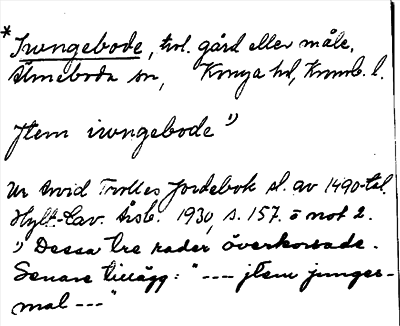 *Irvngebode, trol. gård eller måle,
Älmeboda sn, Konga hd, Kronob. l.
Jtem irvngebode 1)
Ur Arvid Trolles Jordebok sl. av 1490-tal.
Hylt.-Cav. Årsb. 1930, s. 157. o not 2.
1) Dessa tre rader överkorsade.
Senare tillägg: " --- jtem junger-
mal --- "